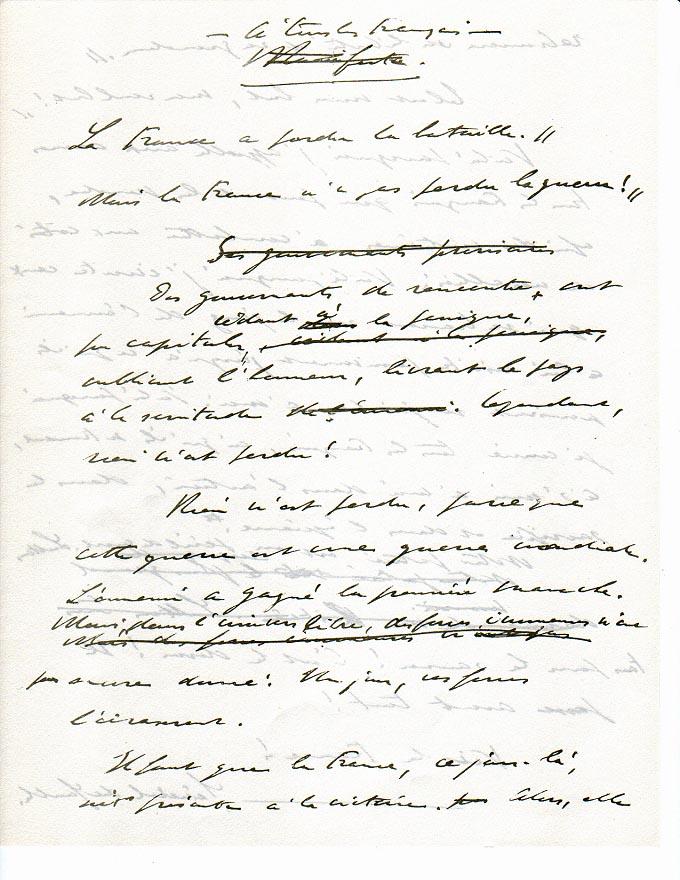 — A tous les Français —
Manifeste.
La France a perdu la bataille. //
Mais la France n'a pas perdu la guerre! //
Des gouvernants
Des gouvernants de rencontre, ont
cédant à la panique,
pu capituler, cédant à la panique,
oubliant l'honneur, livrant le pays
à la servitude de l'ennemi. Cependant,
rien n'est perdu!
Rien n'est perdu, parce que
cette guerre est une guerre mondiale.
L'ennemi a gagné la première manche.
Mais, dans l'univers libre, des forces immenses n'ont
Mais des forces immenses n'ont pas
pas encore donné. Un jour, ces forces
l'écraseront.
Il faut que la France, ce jour-là,
soit présente à la victoire. Alors, elle